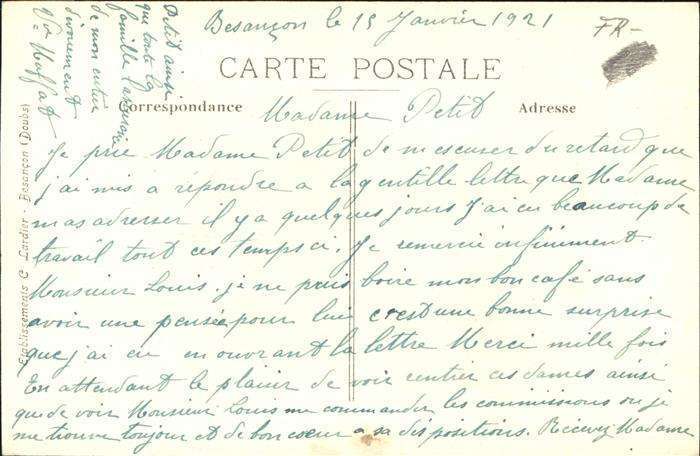 Besançon le 15 Janvier 1921
FR-
CARTE POSTALE
Correspondance
Adresse
Madame Petit
Je prie Madame Petit de m'escuser du retard que
j'ai mis a répondre a la gentille lettre que Madame
m'as adresser il y a quelques jours J'ai eu beaucoup de
travail tout ces temps ci. Je remercie infiniment
Monsieur Louis. je ne puis boire mon bon café sans
avoir une pensée pour lui c'est une bonne surprise
que j'ai eu en ouvrant la lettre Merci mille fois
En attendant le plaisir de voir rentrer ces dames ainsi
que de voir Monsieur Louis me commander les commissions ou je
me trouve toujour et de bon coeur a sa dispositions. Recevez Madame
Petit ainsi
que toute la
famille
de mon entier
dévouement
Vve
Etablissements C Lardier - Besançon (Doubs)